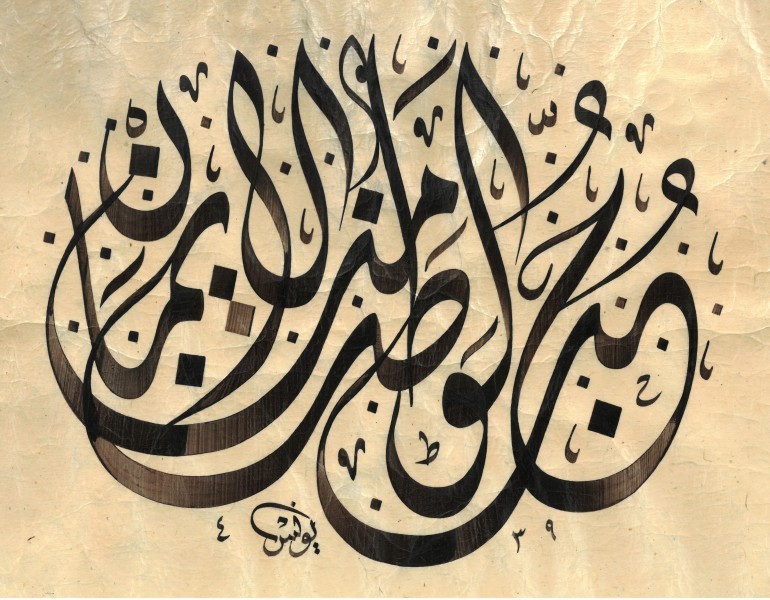 حب الوطن من الإيمان
٤ يونس ٣٩